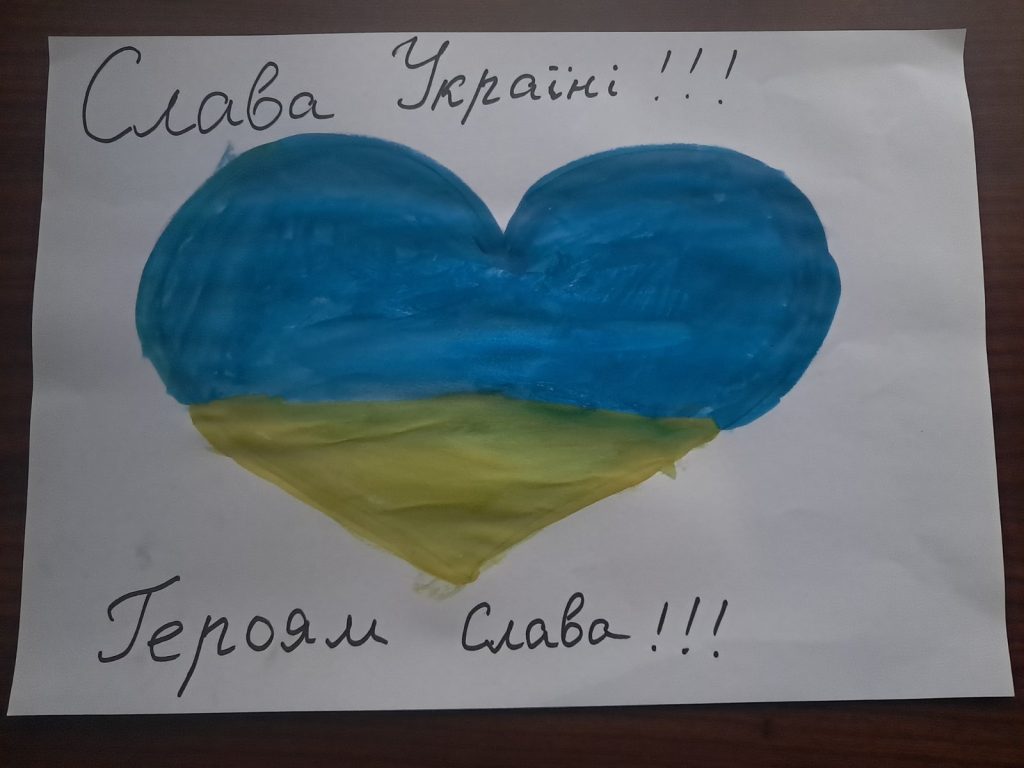 Слава Україні!!!
Героям слава!!!